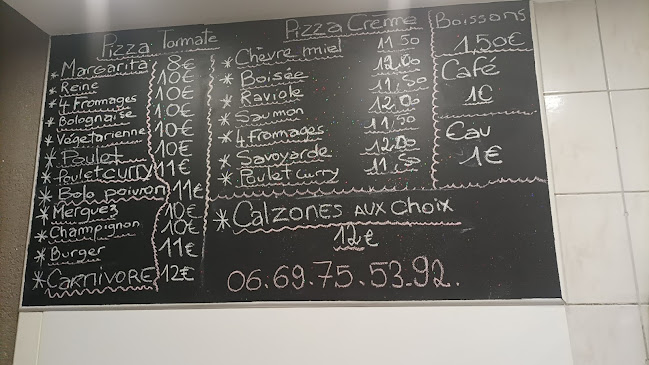 Pizza Tomate
* Margarita 8€
* Reine 10€
* 4 Fromages 10€
* Bolognaise 10€
* Végetarienne 10€
* Poulet 10€
* Poulet curry 11€
* Bolo poivron 11€
* Merguez 10€
* Champignon 10€
* Burger 11€
* CARNIVORE 12€
Pizza Crème
* Chèvre miel 11,50
* Boisée 12,00
* Raviole 11,50
* Saumon 12,00
* 4 fromages 11,50
* Savoyarde 12,00
* Poulet curry 11,50
* Calzones aux choix
12€
06.69.75.53.92.
Boissons
1,50€
Café
1€
Eau
1€